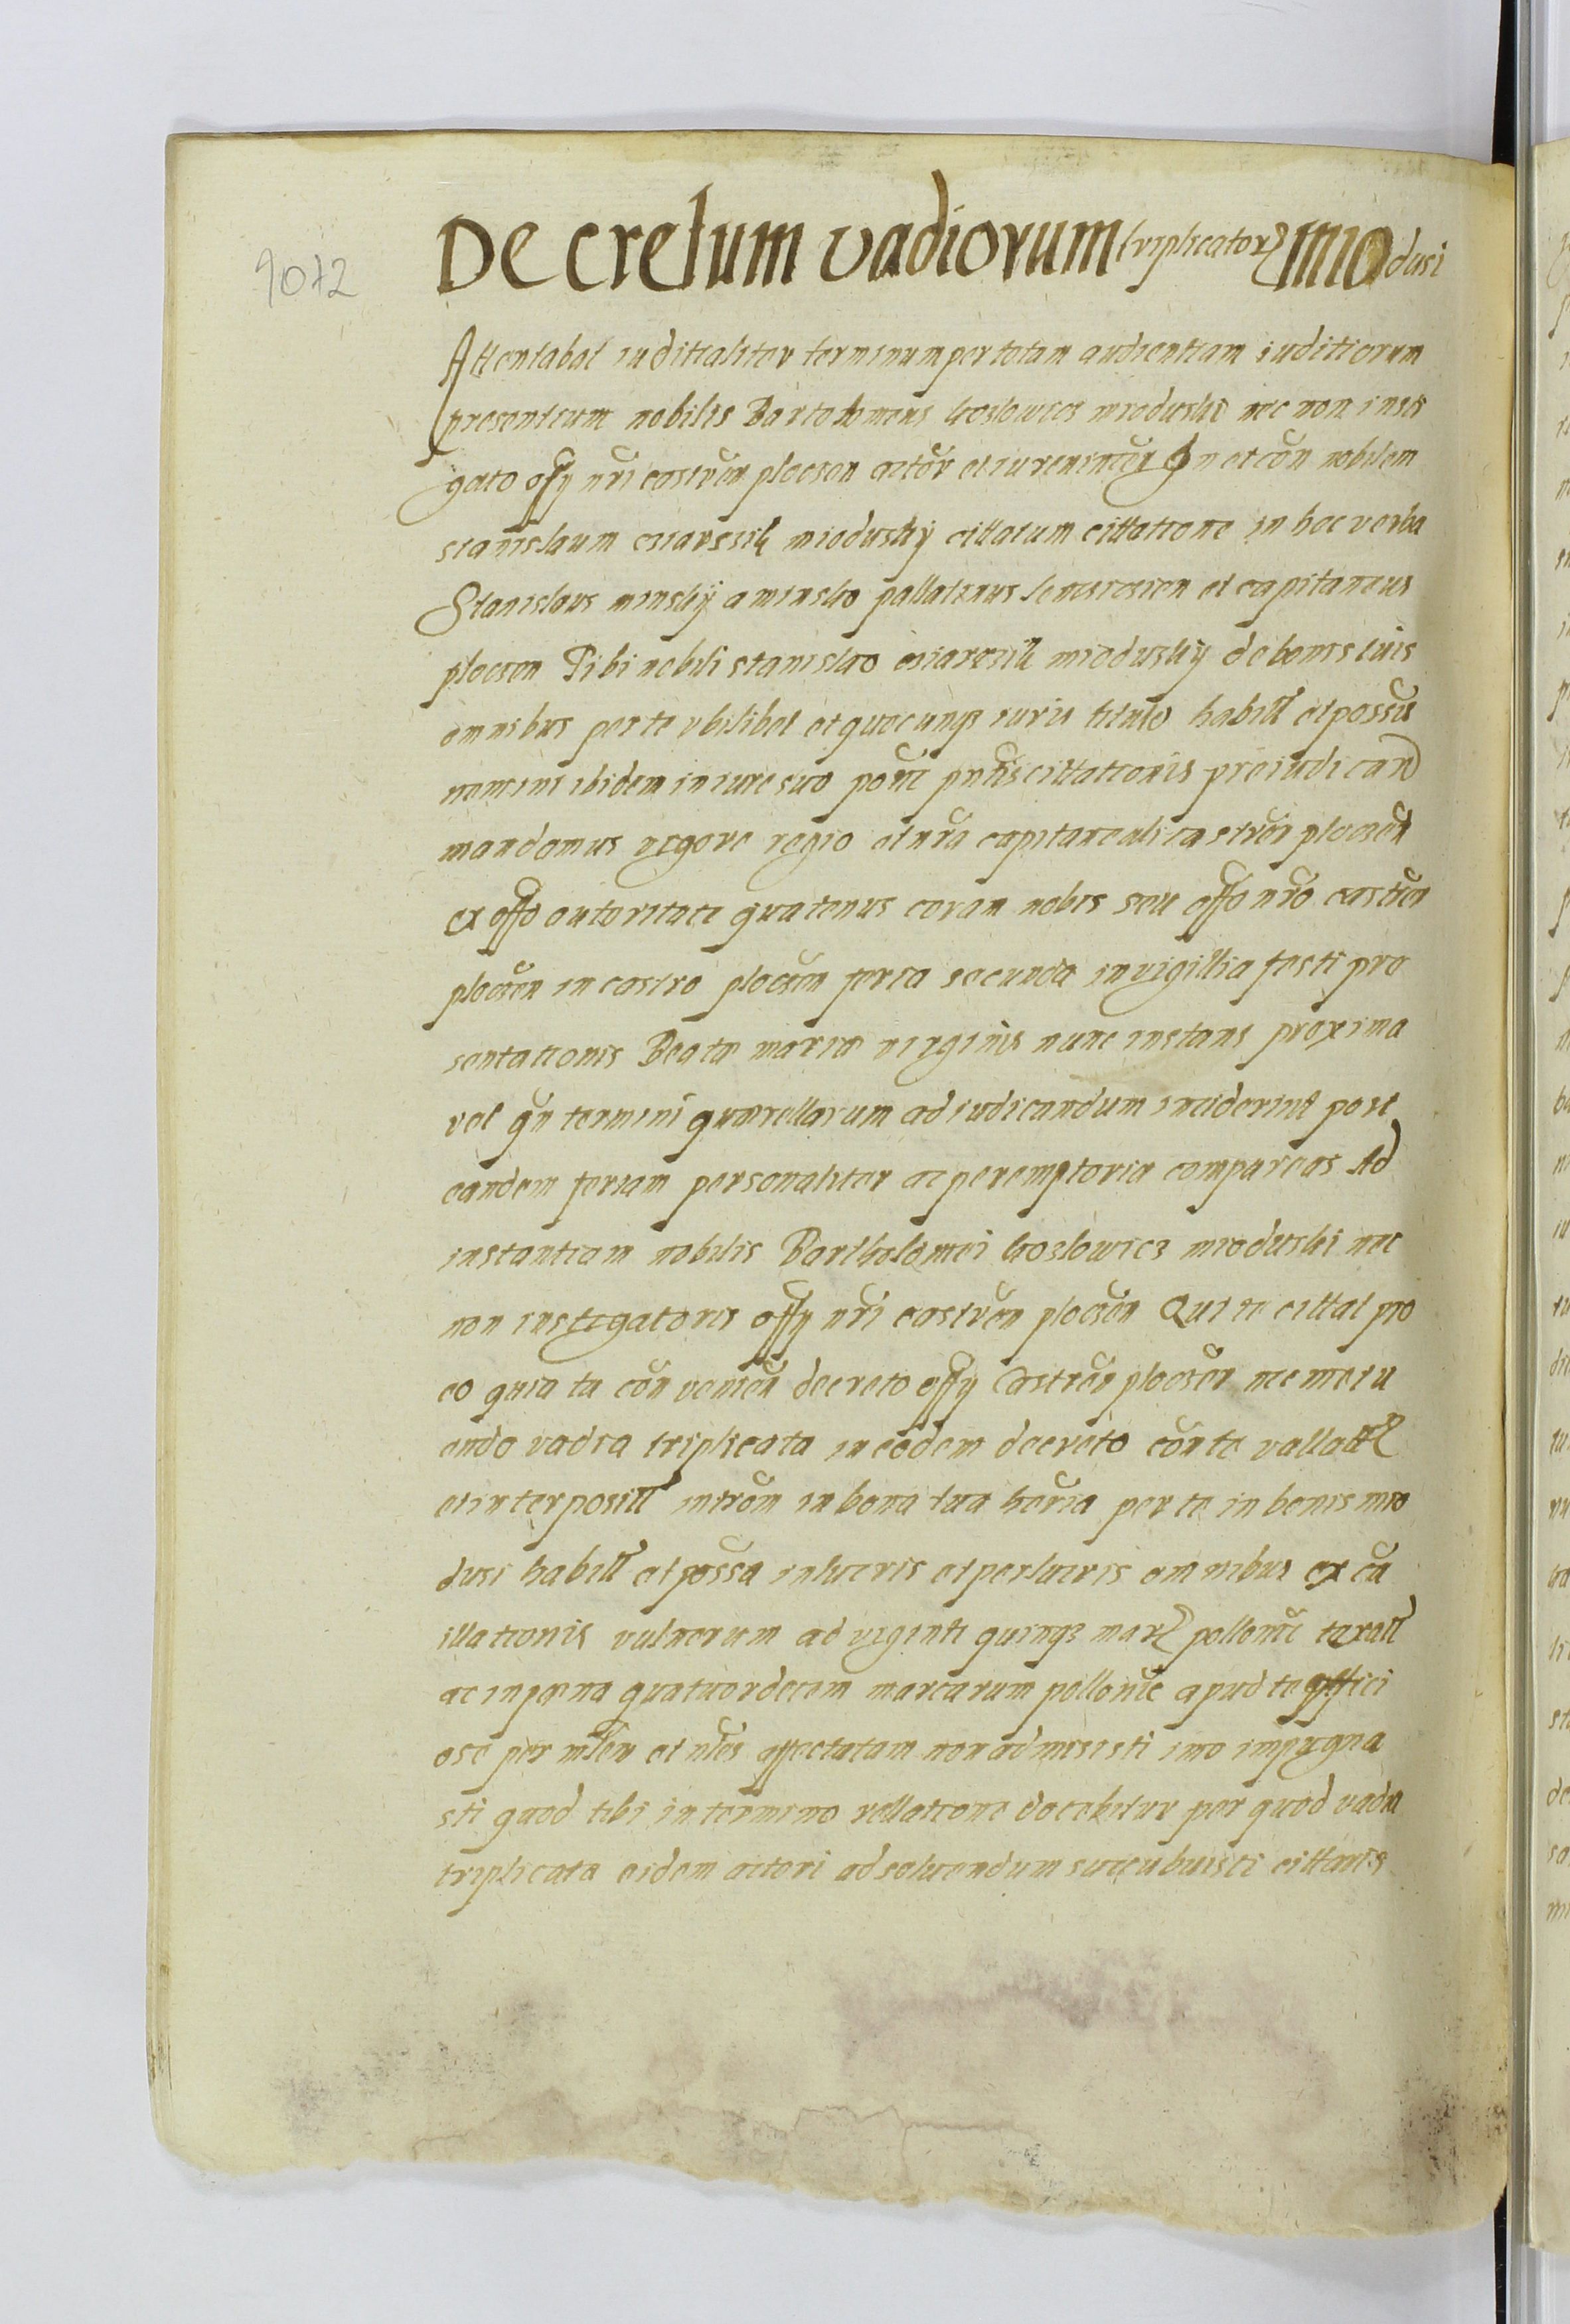 9072
Decretum vadiorum triplicator Miodusi
Attentabat iuditialiter terminum per totam audientiam iuditiorum
presentium nobilis Bartolomeus kozlowicz mioduski nec non insti
gato offy nri castren plocsen actor et iure vincen In et con nobilem
stanislaum miodusky cittatum cittatione in hec verba
Stanislaus minsky a minsko pallatinus lencicien et capitaneus
plocsen Tibi nobili stanislao miodusky de bonis tuis
omnibus per te ubilibet et quocunq iuris titulo habitt et possu
nemini ibidem in iure suo pntis cittationis preiudican
mandamus vigore regio et nra capitaneali castren plocsen
ex offo autoritate quatenus coram nobis seu offo nro castren
plocsen in castro plocsen feria secunda in vigillia festi pre
sentationis Beatæ mariæ virginis nunc instans proxima
vel qn termini quærellarum ad iudicandum inciderint post
eandem feriam personaliter ac peremptorie compareas Ad
instantiam nobilis Bartholomei kozlowicz mioduski nec
non instigatoris offy nri castren plocsen Qui te cittat pro
eo quia tu con venien decreto offy Castren plocsen nec metu
endo vadia triplicata in eodem decreto con te vallat
et interposit introm in bona tua heria per te in bonis mio
dusi habitt et possa in lucris et perlucris omnibus ex ca
illationis vulnerum ad viginti quinq mar pollonic taxatt
ac in pæna quatuordecem marcarum pollonic apud te offici
ose per mlem et nles affectatam non admisisti imo impugna
sti quod tibi in termino rellatione docebitur per quod vadia
triplicata eidem actori ad solvendum succubuisti cittatus